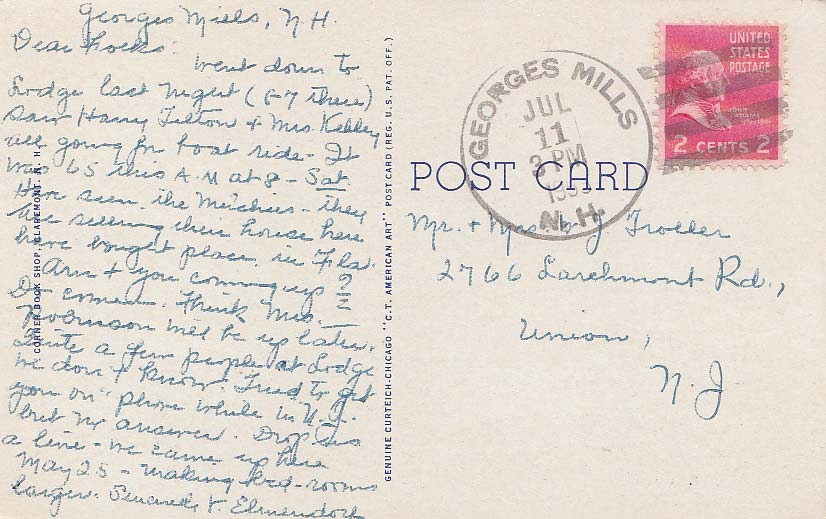 Georges Mills, N.H.
Dear Folks:
Went down to
Lodge last night (6-7 there)
Saw Harry Tilton + Mrs. Kelley
all going for boat ride - It
was 65 this A.M at 8 - Sat.
Have seen the - they
are selling their house here
have bought place in Fla.
Ann + you coming up?
Do come. Think Mrs.
Robinson will be up later.
Quite a few people at Lodge
we don't know. Tried to get
you on 'phone while in N.J.
but no answer. Drop us
a line - we came up here
May 25 - making bed-rooms
larger. Sincerely, V. Elmendorf
CORNER BOOK SHOP, CLAREMONT, N. H.
GENUINE CURTEICH-CHICAGO "C.T. AMERICAN ART" POST CARD (REG. U.S. PAT. OFF.)
GEORGES MILLS
JUL
11
3 PM
N.H.
UNITED
STATES
POSTAGE
JOHN
ADAMS
1797-1801
2 CENTS 2
POST CARD
Mr. + Mrs. J Troller
2766 Larchmont Rd.,
Union,
N.J